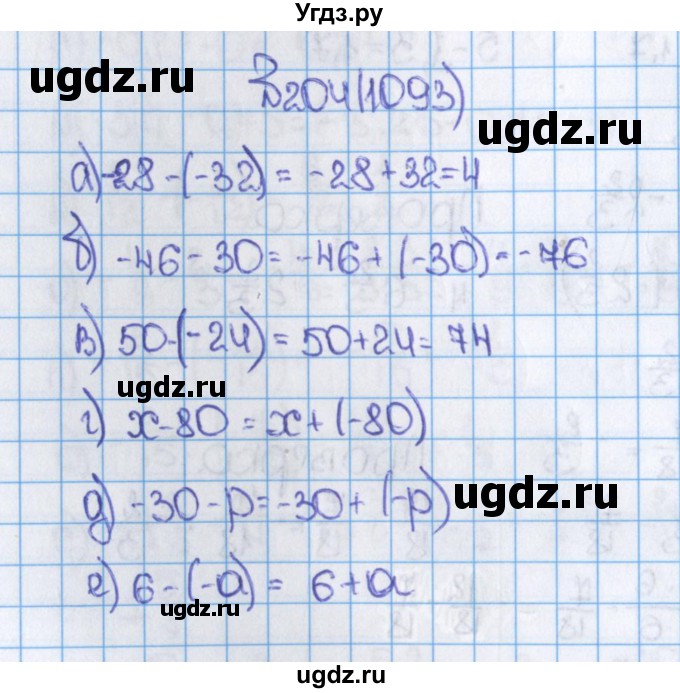 Угдз.ру
ugdz.ru
ugdz.ru
204(1093)
ugdz.ru
а) -28 - (-32) = -28 + 32 = 4
б) -46 - 30 = -46 + (-30) = -76
в) 50 - (-24) = 50 + 24 = 74
ugdz.ru
г) x - 80 = x + (-80)
ugdz.ru
д) -30 - p = -30 + (-p)
е) 6 - (-a) = 6 + a
ugdz.ru
ugdz.ru